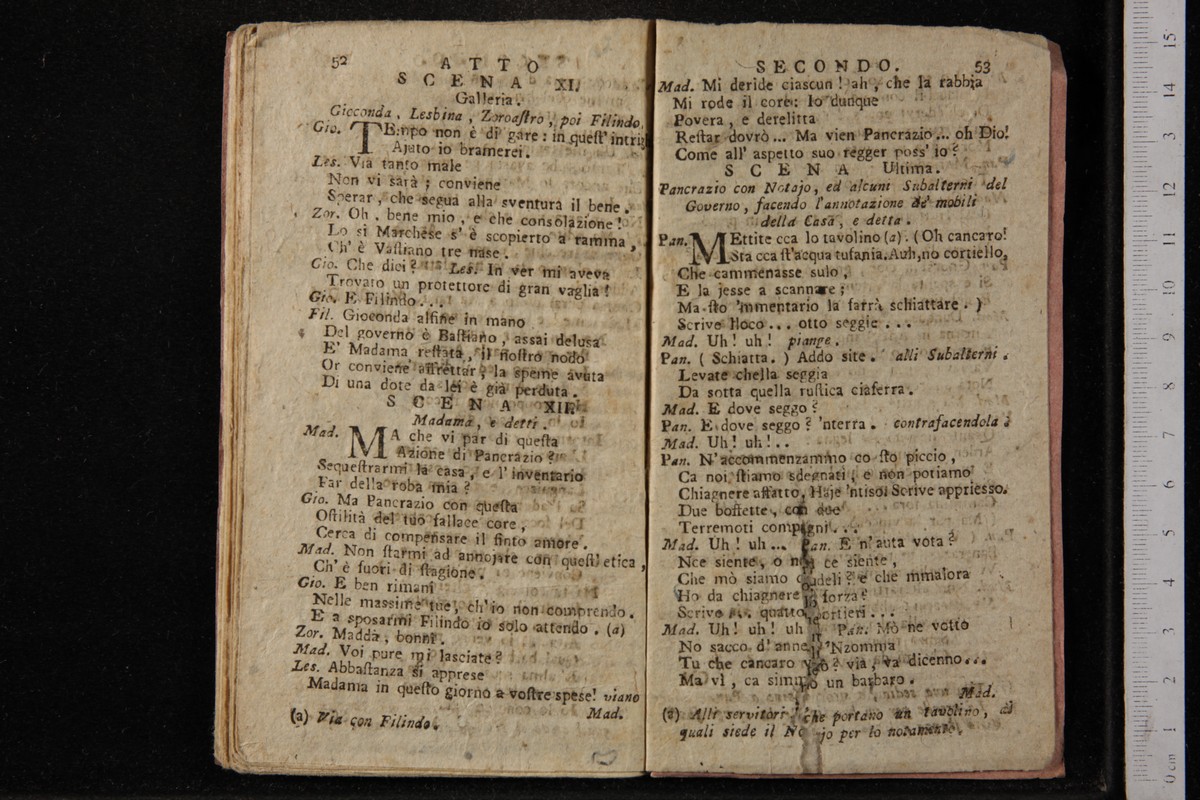 52 ATTO
SCENA XI.
Galleria.
Gioconda, Lesbina, Zoroaſtro, poi Filindo.
Gio. TEmpo non è di gare: in queſt' intrigh
Ajuto io bramerei.
Les. Via tanto male
Non vi sarà; conviene
Sperar, che segua alla sventura il bene.
Zor. Oh, bene mio, e che consolazione!
Lo si Marchese s' è scopierto a ramma,
Ch' è Vaſtiano tre nase.
Gio. Che dici? Les. In ver mi aveva
Trovato un protettore di gran vaglia!
Gio. E Filindo...
Fil. Gioconda alfine in mano
Del governo è Baſtiano, assai delusa
E' Madama reſtata, il noſtro nodo
Or conviene affrettar, la speme avuta
Di una dote da lei è già perduta.
SCENA XII.
Madama, e detti.
Mad. MA che vi par di queſta
Azione di Pancrazio?
Sequeſtrarmi la casa, e l' inventario
Far della roba mia?
Gio. Ma Pancrazio con queſta
Oſtilità del tuo fallace core,
Cerca di compensare il finto amore.
Mad. Non ſtarmi ad annojare con queſt' etica,
Ch' è fuori di ſtagione.
Gio. E ben rimani
Nelle massime tue, ch' io non comprendo.
E a sposarmi Filindo io solo attendo. (a)
Zor. Maddà, bonnì.
Mad. Voi pure mi lasciate?
Les. Abbaſtanza si apprese
Madama in queſto giorno a voſtre spese! viano
Mad.
(a) Via con Filindo.
SECONDO. 53
Mad. Mi deride ciascun! ah, che la rabbia
Mi rode il core: Io dunque
Povera, e derelitta
Reſtar dovrò... Ma vien Pancrazio... oh Dio!
Come all' aspetto suo regger poss' io?
SCENA Ultima.
Pancrazio con Notajo, ed alcuni Subalterni del
Governo, facendo l'annotazione de' mobili
della Casa, e detta.
Pan. MEttite cca lo tavolino (a). (Oh cancaro!
Sta cca ſt'acqua tufania. Auh, no cortiello,
Che cammenasse sulo,
E la jesse a scannare;
Ma ſto 'mmentario la farrà schiattare.)
Scrive lloco... otto seggie...
Mad. Uh! uh! piange.
Pan. (Schiatta.) Addo site. alli Subalterni.
Levate chella seggia
Da sotta quella ruſtica ciaferra.
Mad. E dove seggo?
Pan. E dove seggo? 'nterra. contrafacendola
Mad. Uh! uh!..
Pan. N' accommenzammo co ſto piccio,
Ca noi ſtiamo sdegnati, e non potiamo
Chiagnere affatto. Haje 'ntiso? Scrive appriesso.
Due boffette, con due
Terremoti compagni...
Mad. Uh! uh... Pan. E n'auta vota?
Nce siente, o non ce siente,
Che mò siamo crudeli? e che mmalora
Ho da chiagnere forza?
Scrive... quatto portieri...
Mad. Uh! uh! uh Pan. Mò ne votto
No sacco d' anne 'Nzomma
Tu che cancaro vuò? via, va dicenno...
Ma vì, ca simmo un barbaro.
Mad.
(a) Alli servitori, che portano un tavolino, al
quali siede il Notajo per lo notamento.